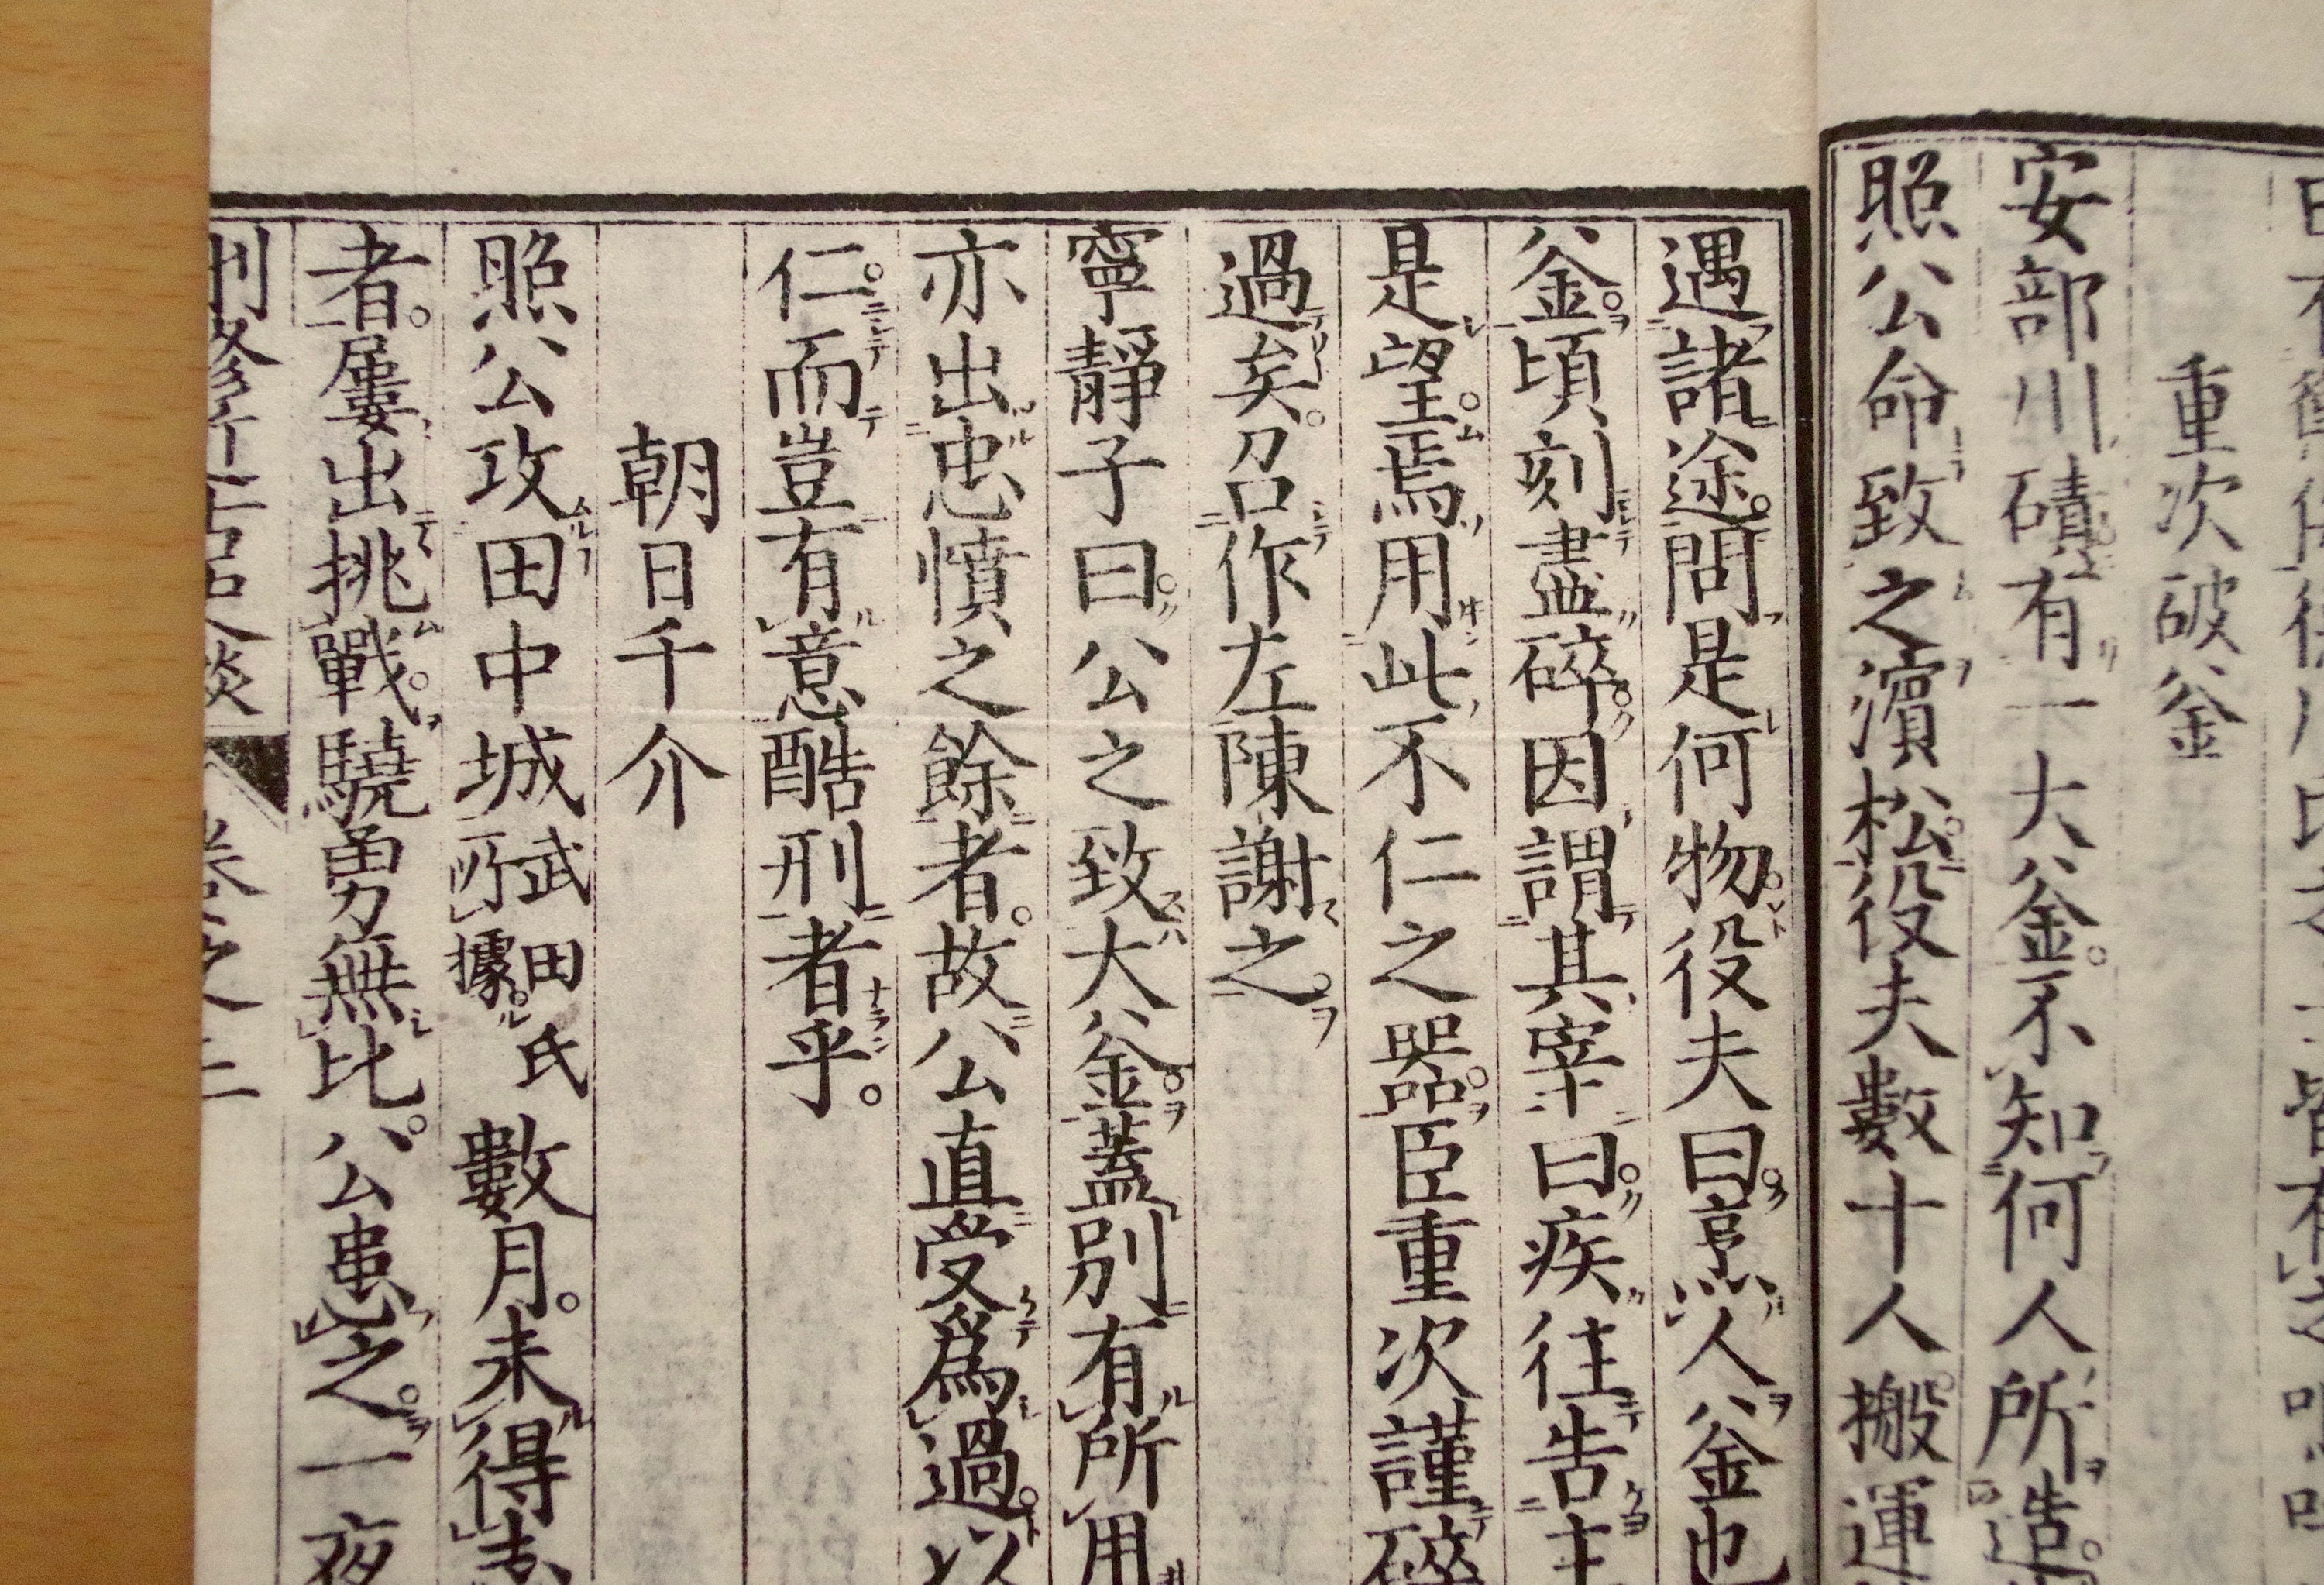 重次破釜
安部川磧有一大釜。不知何人所造。
照公命致之濵松。役夫數十人搬運
遇諸途。問是何物。役夫曰。烹人釜也
釜。頃刻盡碎。因謂其宰曰。疾往告主
是望。焉用此不仁之器。臣重次謹碎
過矣。召作左陳謝之。
寧靜子曰。公之致大釜。蓋別有所用
亦出忠憤之餘者。故公直受爲過。以
仁。而豈有意酷刑者乎。
朝日千介
照公攻田中城武田氏所據。數月。未得志
者。屢出挑戰。驍勇無比。公患之。一夜
刪修近古史談 卷之二